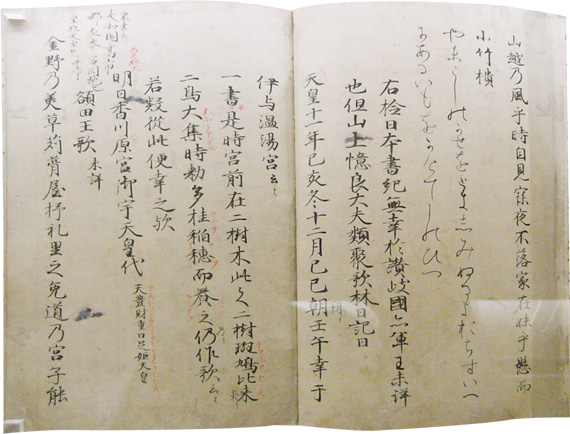 山越乃風乎時自見寐夜不落家在妹乎懸而
小竹樻
やまこしのかせをときしみぬるよおちすいへ
にあるいもをかけてしのひつ
右檢日本書紀無幸於讃岐國亦軍王未詳
也但山上憶良大夫類聚歌林曰記曰
天皇十一年己亥冬十二月己巳朔壬午幸于
伊与温湯宮云々
一書是時宮前在二樹木此之二樹斑鳩比米
二鳥大集時勅多挂稲穂而養之仍作歌云々
若疑從此便幸之歟
明日香川原宮御宇天皇代 天豊財重日足姫天皇
額田王歌 未詳
金野乃美草苅葺屋杼礼里之兔道乃宮子能